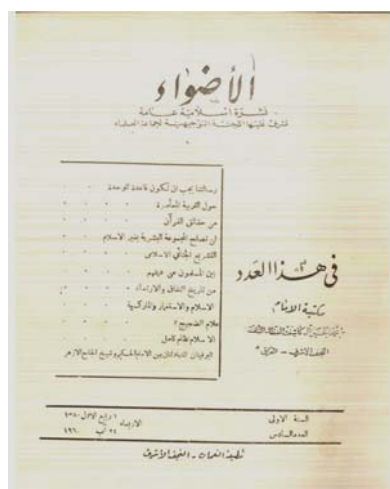 الأضواء
نشرة اسلامية عامة
تشرف عليها اللجنة التوجيهية لجماعة العلماء
رسالتنا يجب ان تكون قاعدة للوحدة
حول التربية
من حقائق القرآن
لن تصلح المجموعة البشرية بغير الاسلام
التشريع الجنائي الاسلامي
اين المسلمون من دينهم
من تاريخ النفاق
الاسلام والاستعمار والماركسية
علام الضجيج؟
الاسلام نظام كامل
في هذا العدد
مكتبة الامام
النجف الاشرف - العراق
السنة الاولى
العدد السادس
الاربعاء
ربيع الاول ١٣٨٠
٢٤ آب ١٩٦٠
مطبعة النعمان - النجف الأشرف